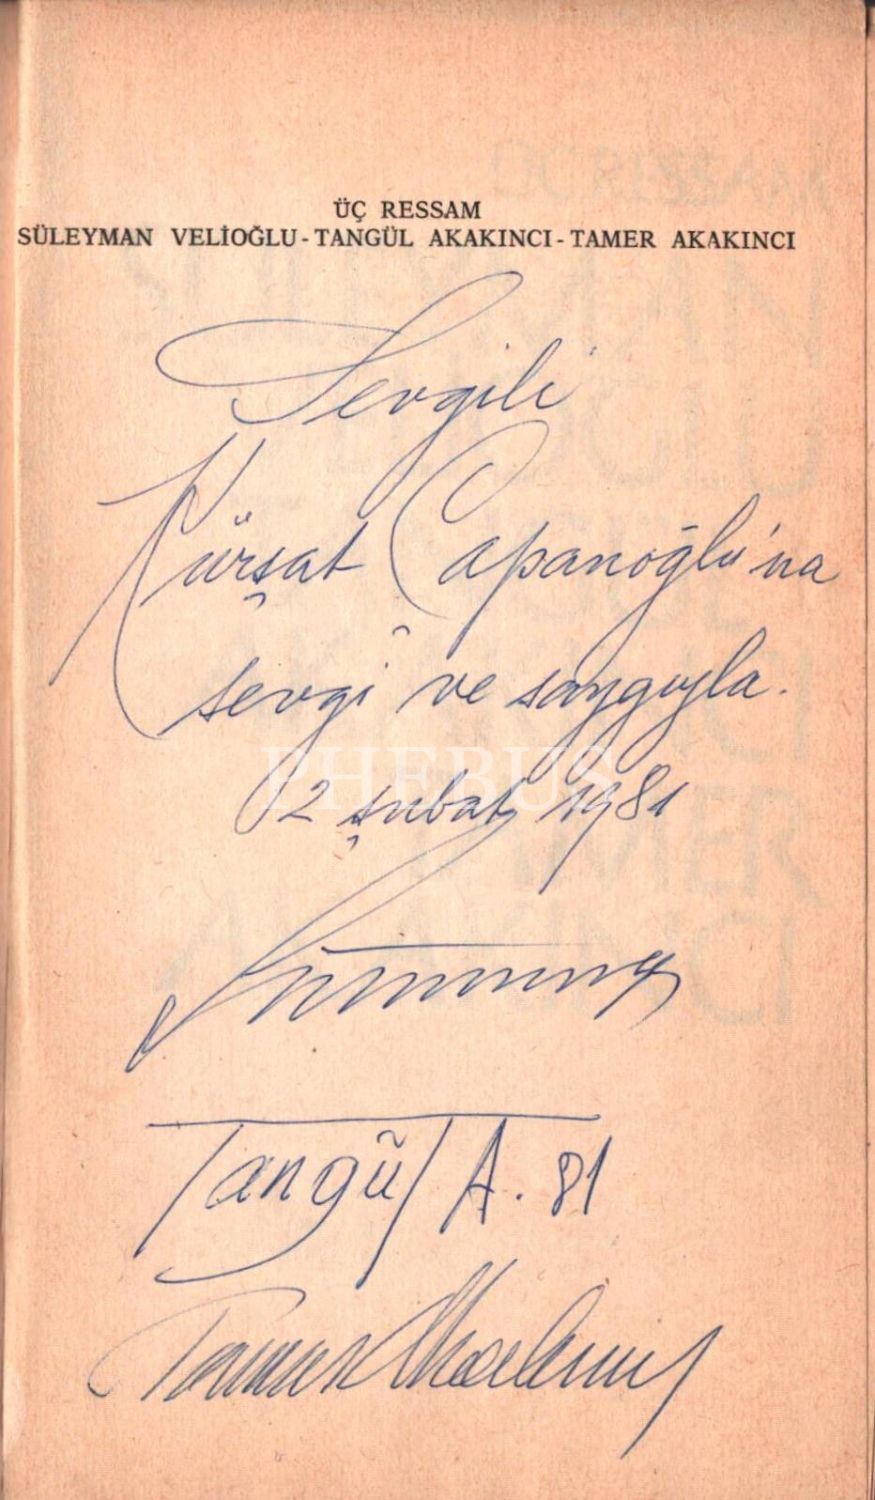 ÜÇ RESSAM
SÜLEYMAN VELİOĞLU - TANGÜL AKAKINCI - TAMER AKAKINCI
Sevgili
Kürşat Çapanoğlu'na
sevgi ve saygıyla.
PHEBUS
2 şubat 1981
Tangül A. 81
Tamer Akakıncı